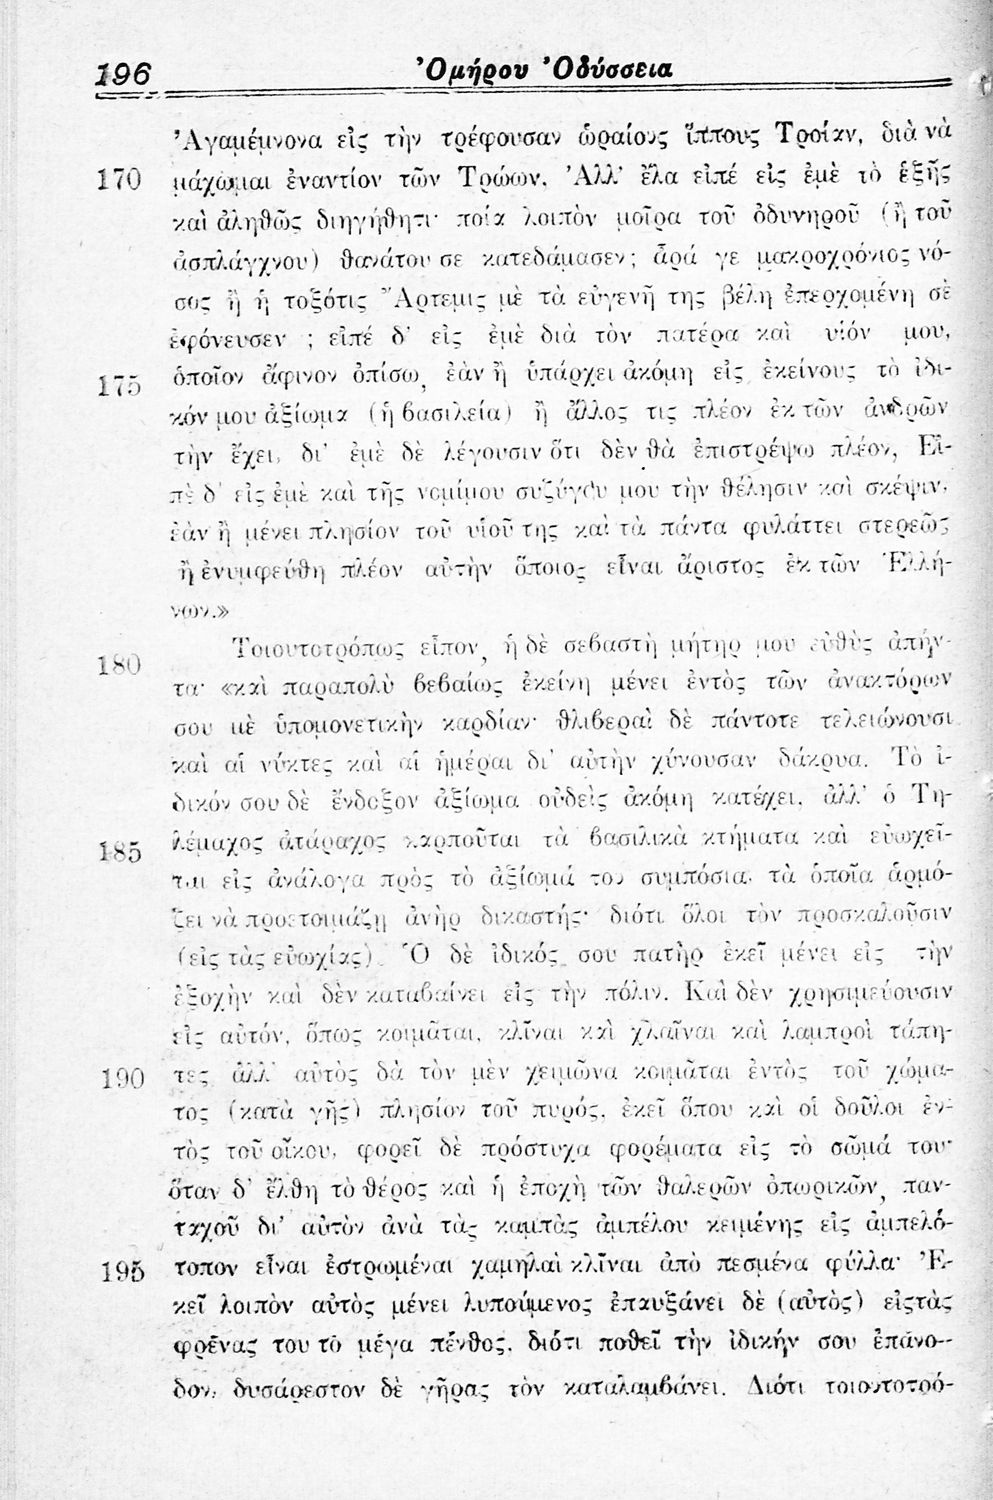 196 Ὁμήρου Ὀδύσσεια
Ἀγαμέμνονα εἰς τὴν τρέφουσαν ὡραίους ἵππους Τροίαν, διὰ νὰ
170 μάχωμαι ἐναντίον τῶν Τρώων. Ἀλλ' ἔλα εἰπέ εἰς ἐμὲ τὸ ἑξῆς
καὶ ἀληθῶς διηγήθητι· ποία λοιπὸν μοῖρα τοῦ ὀδυνηροῦ (ἢ τοῦ
ἀσπλάγχνου) θανάτου σε κατεδάμασεν; ἆρά γε μακροχρόνιος νό-
σος ἢ ἡ τοξότις Ἄρτεμις μὲ τὰ εὐγενῆ της βέλη ἐπερχομένη σὲ
ἐφόνευσεν ; εἰπέ δ' εἰς ἐμὲ διὰ τὸν πατέρα καὶ υἱόν μου,
175 ὁποῖον ἄφινον ὀπίσω, ἐὰν ἢ ὑπάρχει ἀκόμη εἰς ἐκείνους τὸ ἰδι-
κόν μου ἀξίωμα (ἡ βασιλεία) ἢ ἄλλος τις πλέον ἐκ τῶν ἀνδρῶν
τὴν ἔχει, δι' ἐμὲ δὲ λέγουσιν ὅτι δὲν θὰ ἐπιστρέψω πλέον, Εἰ-
πὲ δ' εἰς ἐμὲ καὶ τῆς νομίμου συζύγου μου τὴν θέλησιν καὶ σκέψιν,
ἐὰν ἢ μένει πλησίον τοῦ υἱοῦ της καὶ τὰ πάντα φυλάττει στερεῶς
ἢ ἐνυμφεύθη πλέον αὐτὴν ὅποιος εἶναι ἄριστος ἐκ τῶν Ἑλλή-
νων.»
180 Τοιουτοτρόπως εἶπον, ἡ δὲ σεβαστὴ μήτηρ μου εὐθὺς ἀπήν-
τα· «καὶ παραπολὺ βεβαίως ἐκείνη μένει ἐντὸς τῶν ἀνακτόρων
σου μὲ ὑπομονετικὴν καρδίαν· θλιβεραὶ δὲ πάντοτε τελειώνουσι
καὶ αἱ νύκτες καὶ αἱ ἡμέραι δι' αὐτὴν χύνουσαν δάκρυα. Τὸ ἰ-
δικόν σου δὲ ἔνδοξον ἀξίωμα οὐδεὶς ἀκόμη κατέχει, ἀλλ' ὁ Τη-
185 λέμαχος ἀτάραχος καρποῦται τὰ βασιλικὰ κτήματα καὶ εὐωχεῖ-
ται εἰς ἀνάλογα πρὸς τὸ ἀξίωμά του συμπόσια, τὰ ὁποῖα ἁρμό-
ζει νὰ προετοιμάζῃ ἀνὴρ δικαστής· διότι ὅλοι τὸν προσκαλοῦσιν
(εἰς τὰς εὐωχίας). Ὁ δὲ ἰδικός σου πατὴρ ἐκεῖ μένει εἰς τὴν
ἐξοχὴν καὶ δὲν καταβαίνει εἰς τὴν πόλιν. Καὶ δὲν χρησιμεύουσιν
εἰς αὐτόν, ὅπως κοιμᾶται, κλῖναι καὶ χλαῖναι καὶ λαμπροὶ τάπη-
190 τες ἀλλ' αὐτὸς δὰ τὸν μὲν χειμῶνα κοιμᾶται ἐντὸς τοῦ χώμα-
τος (κατὰ γῆς) πλησίον τοῦ πυρός, ἐκεῖ ὅπου καὶ οἱ δοῦλοι ἐν-
τὸς τοῦ οἴκου, φορεῖ δὲ πρόστυχα φορέματα εἰς τὸ σῶμά του·
ὅταν δ' ἔλθη τὸ θέρος καὶ ἡ ἐποχὴ τῶν θαλερῶν ὀπωρικῶν, παν-
ταχοῦ δι' αὐτὸν ἀνὰ τὰς καμπὰς ἀμπέλου κειμένης εἰς ἀμπελό-
195 τοπον εἶναι ἐστρωμέναι χαμηλαὶ κλῖναι ἀπὸ πεσμένα φύλλα· Ἐ-
κεῖ λοιπὸν αὐτὸς μένει λυπούμενος ἐπαυξάνει δὲ (αὐτὸς) εἰς τὰς
φρένας του τὸ μέγα πένθος, διότι ποθεῖ τὴν ἰδικήν σου ἐπάνο-
δον, δυσάρεστον δὲ γῆρας τὸν καταλαμβάνει. Διότι τοιουτοτρό-